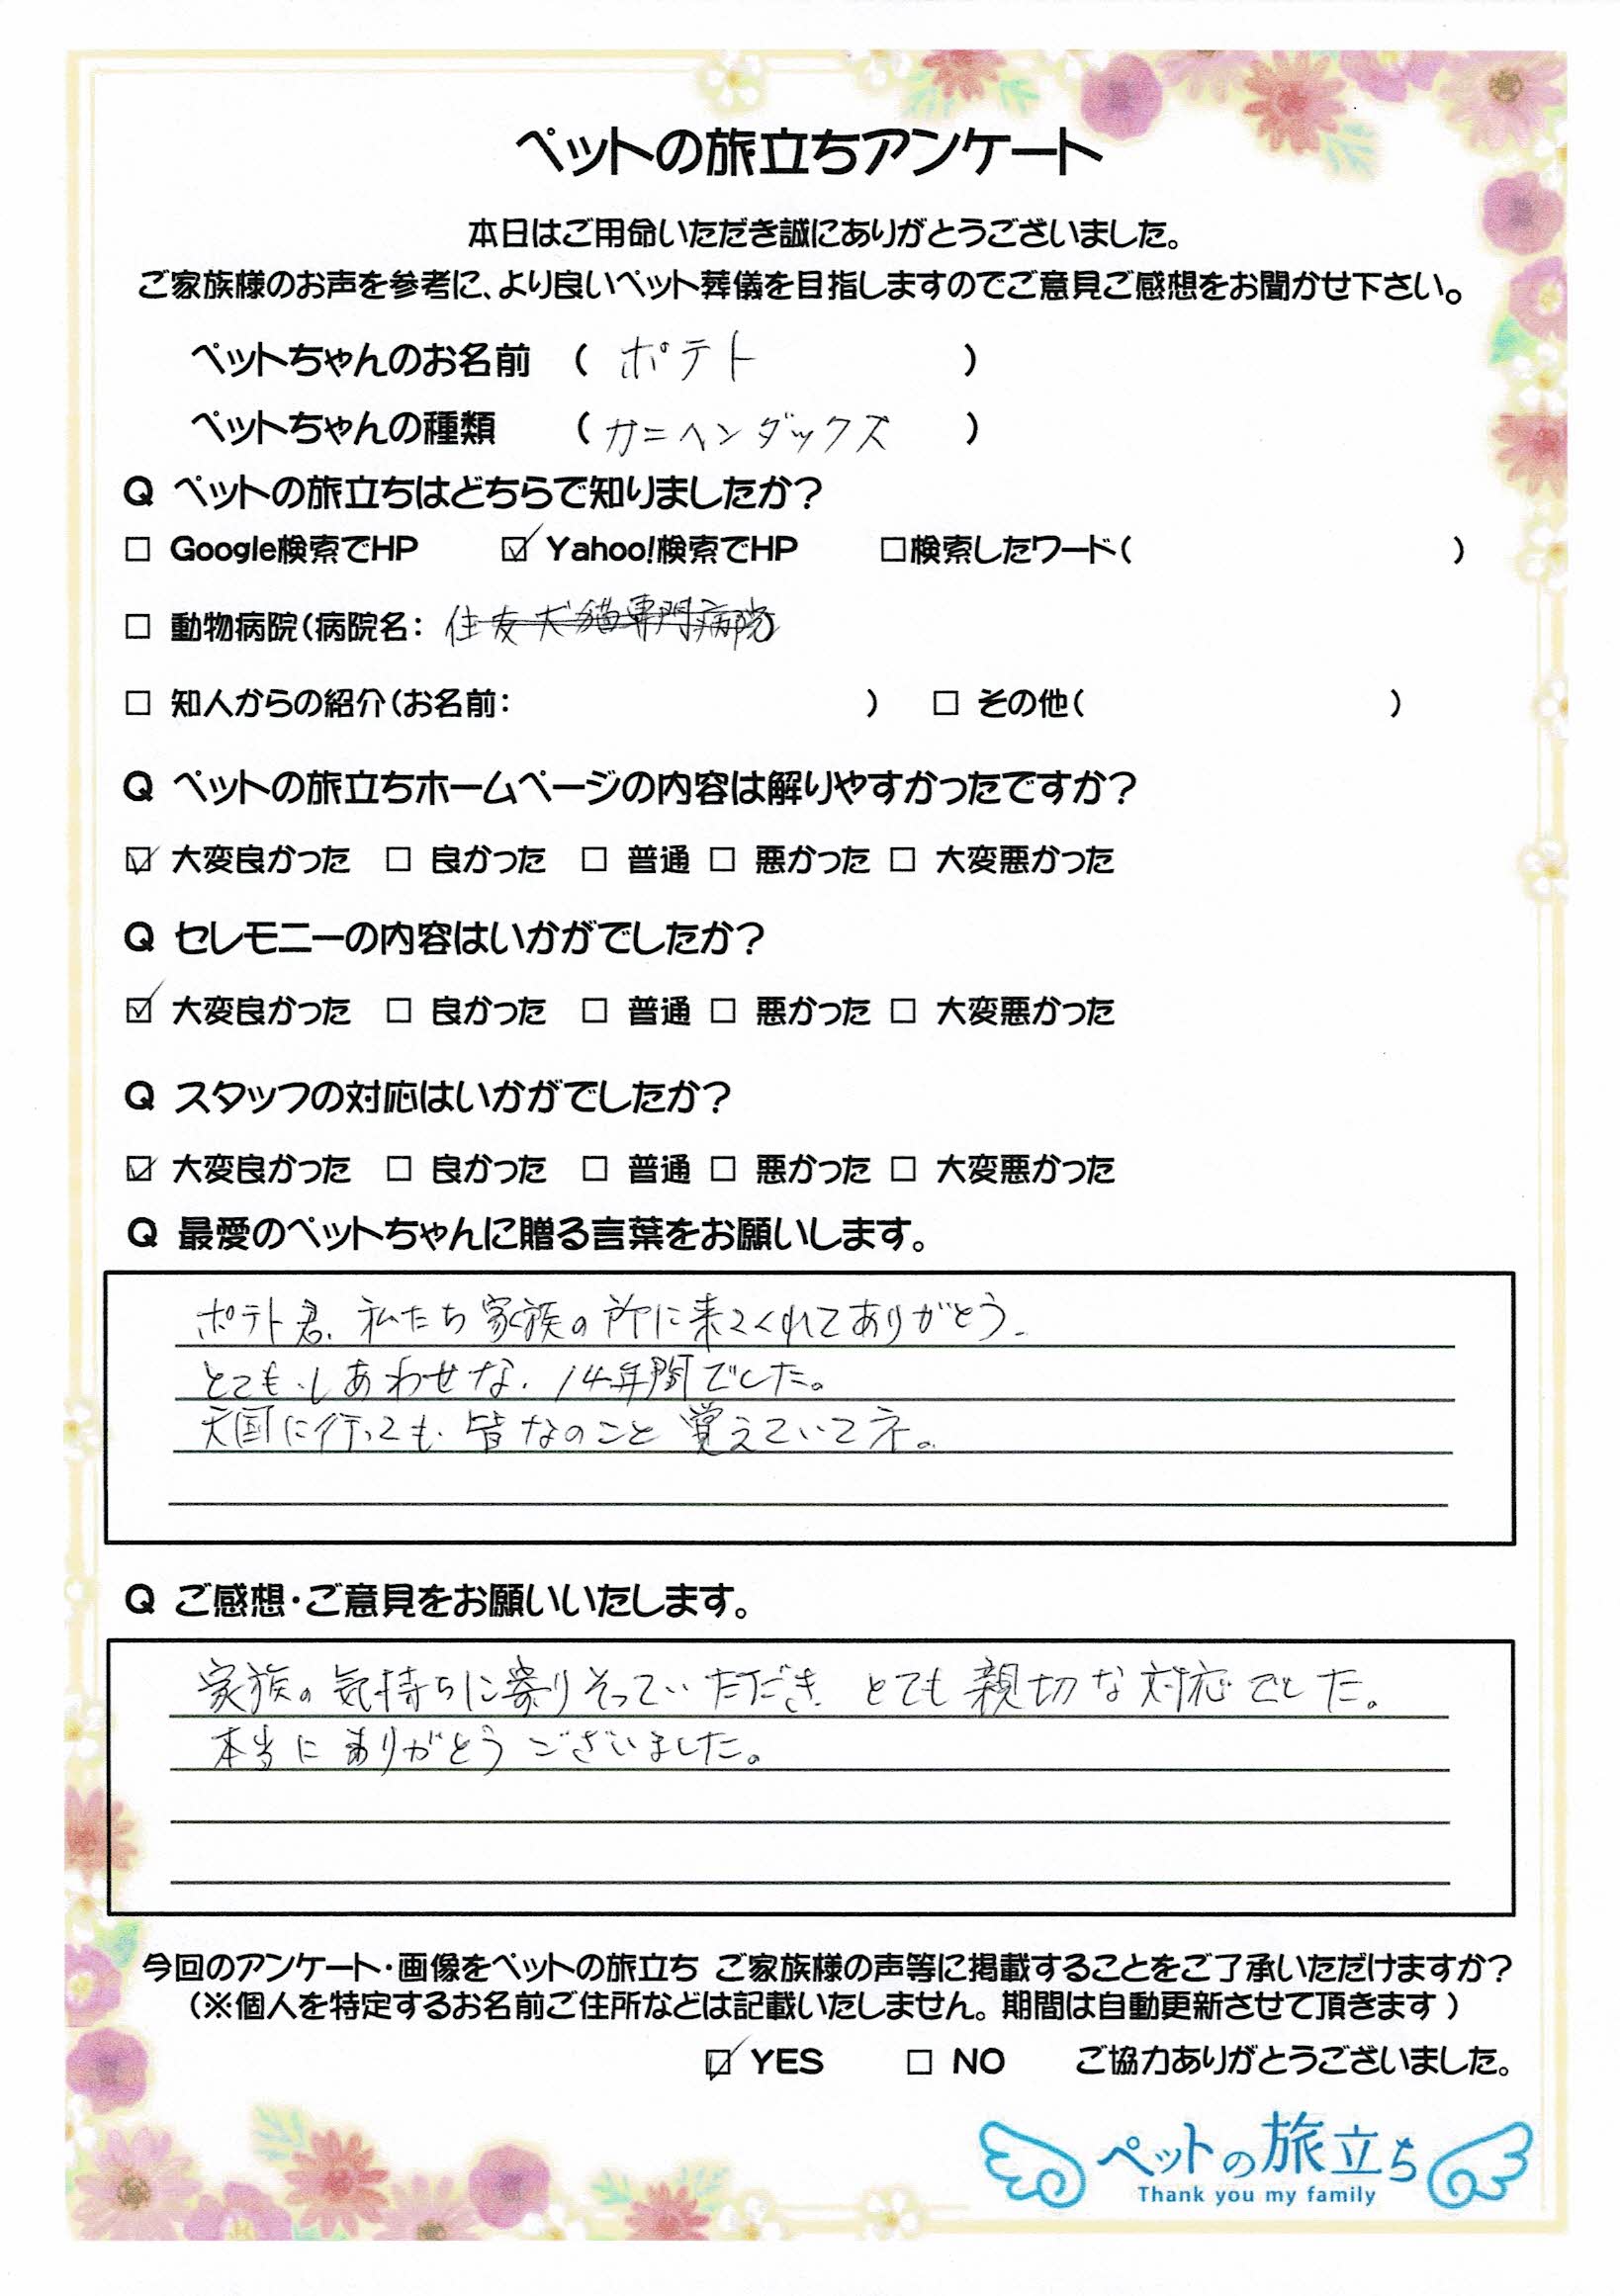 ペットの旅立ちアンケート
本日はご用命いただき誠にありがとうございました。
ご家族様のお声を参考に、より良いペット葬儀を目指しますのでご意見ご感想をお聞かせ下さい。
ペットちゃんのお名前 ( ポテト )
ペットちゃんの種類 ( カニヘンダックス )
Q ペットの旅立ちはどちらで知りましたか?
□ Google検索でHP ☑ Yahoo!検索でHP □検索したワード( )
□ 動物病院(病院名: 住友犬猫専門病院)
□ 知人からの紹介(お名前: ) □ その他( )
Q ペットの旅立ちホームページの内容は解りやすかったですか?
☑ 大変良かった □ 良かった □ 普通 □ 悪かった □ 大変悪かった
Q セレモニーの内容はいかがでしたか?
☑ 大変良かった □ 良かった □ 普通 □ 悪かった □ 大変悪かった
Q スタッフの対応はいかがでしたか?
☑ 大変良かった □ 良かった □ 普通 □ 悪かった □ 大変悪かった
Q 最愛のペットちゃんに贈る言葉をお願いします。
ポテト君、私たち家族の所に来てくれてありがとう。
とても、しあわせな、14年間でした。
天国に行っても、皆なのこと覚えていてネ。
Q ご感想・ご意見をお願いいたします。
家族の気持ちに寄りそっていただき、とても親切な対応でした。
本当にありがとうございました。
今回のアンケート・画像をペットの旅立ち ご家族様の声等に掲載することをご了承いただけますか?
(※個人を特定するお名前ご住所などは記載いたしません。期間は自動更新させて頂きます)
☑ YES □ NO ご協力ありがとうございました。
ペットの旅立ち
Thank you my family